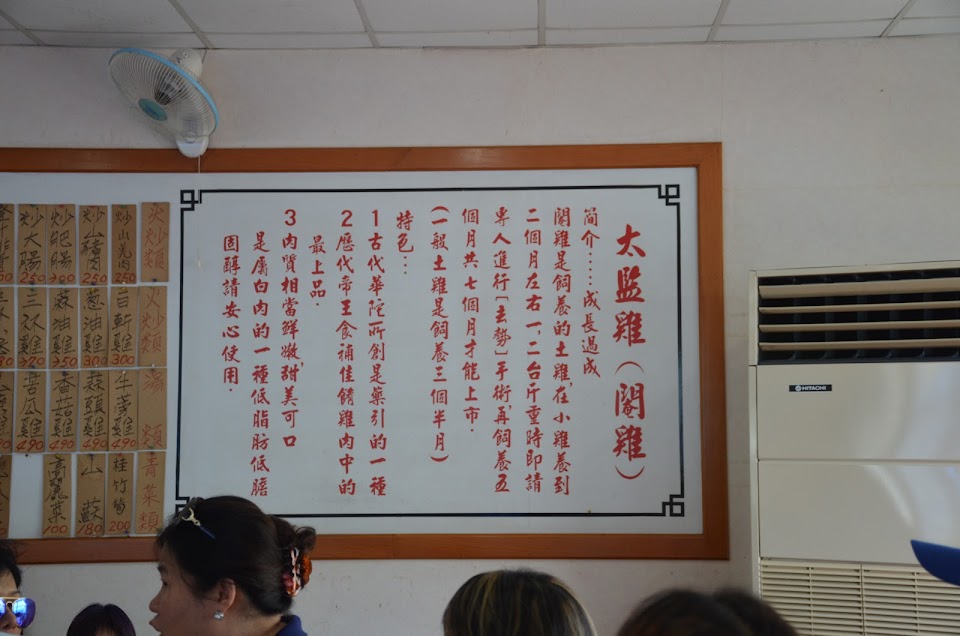 太監雞(閹雞)
簡介……成長過成
閹雞是飼養的土雞,在小雞養到
二個月左右一、二台斤重時即請
專人進行[去勢]手術,再飼養五
個月共七個月才能上市.
(一般土雞是飼養三個半月)
特色…
1古代華陀所創是藥引的一種
2歷代帝王食補佳餚雞肉中的
最上品.
3肉質相當鮮嫩,甜美可口
是屬白肉的一種低脂肪低膽
固醇請安心使用.
炒大腸
炒肥腸
火炒類
三杯雞
麻油雞
蔥油雞 300
300
湯類
苦瓜雞 490
香菇雞 490
蒜頭雞 490
490
青菜類
桂竹筍 200
山蘇 180
高麗菜 100
HITACHI